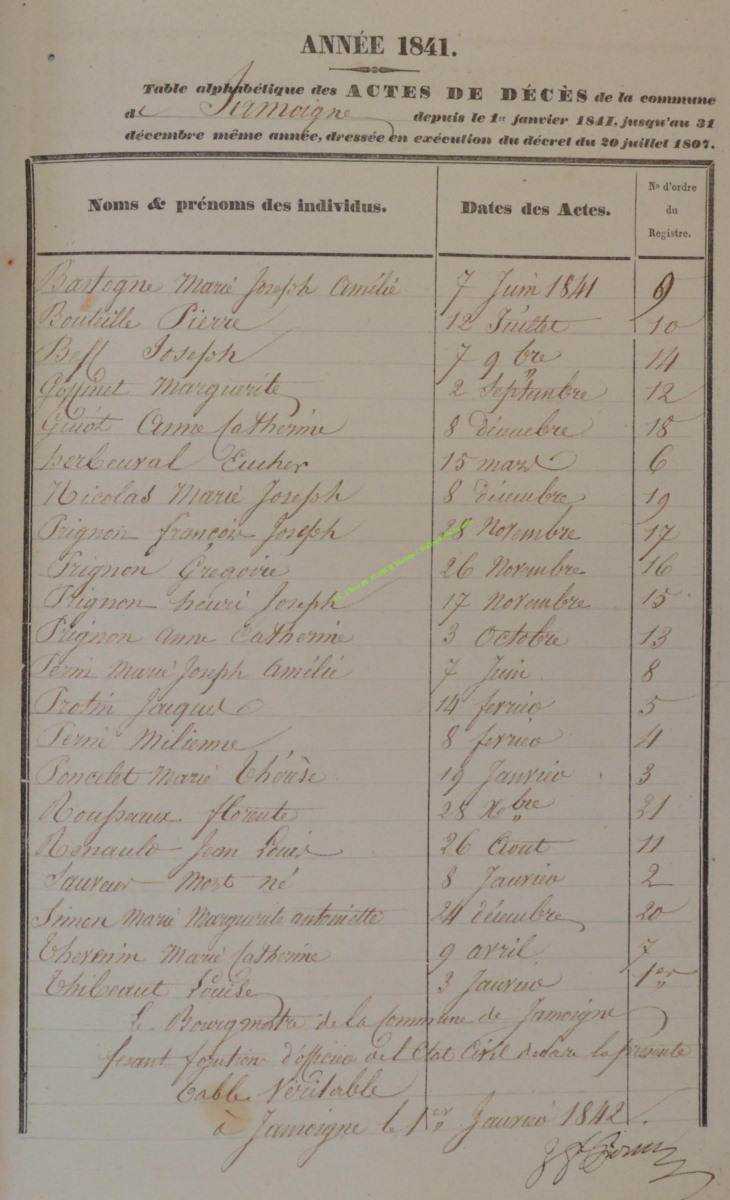 ANNÉE 1841.
Table alphabétique des ACTES DE DÉCÈS de la commune
de Jamoigne depuis le 1er janvier 1841, jusqu'au 31
décembre même année, dressée en exécution du décret du 20 juillet 1807.
Noms & prénoms des individus. Dates des Actes. No d'ordre du Registre.
Bastogne Marie Joseph Amélie 7 Juin 1841 9
Bouteille Pierre 12 Juillet 10
Joseph 7 9bre 14
Marguerite 2 Septembre 12
Guiot Anne Catherine 8 décembre 18
herbeuval Eucher 15 mars 6
Nicolas Marie Joseph 8 décembre 19
Prignon françois Joseph 28 Novembre 17
Prignon Grégoire 26 Novembre 16
Prignon henri Joseph 17 Novembre 15
Prignon Anne Catherine 3 Octobre 13
Marie Joseph Amélie 7 Juin 8
Protin Jacques 14 4 5
Milienne 8 4
Poncelet Marie thérèse 19 Janvier 3
Rousseaux florente 28 Xbre 21
Renauld Jean Louis 26 Aout 11
Sauveur Mort né 8 Janvier 2
Simon Marie Marguerite antoinette 24 décembre 20
thevenin Marie Catherine 9 avril 7
thibeaut Louise 3 Janvier 1er
Le Bourgmestre de la Commune de Jamoigne
fesant fonction d'officier de l'Etat Civil declare la presente
table Véritable
à Jamoigne le 1er Janvier 1842.